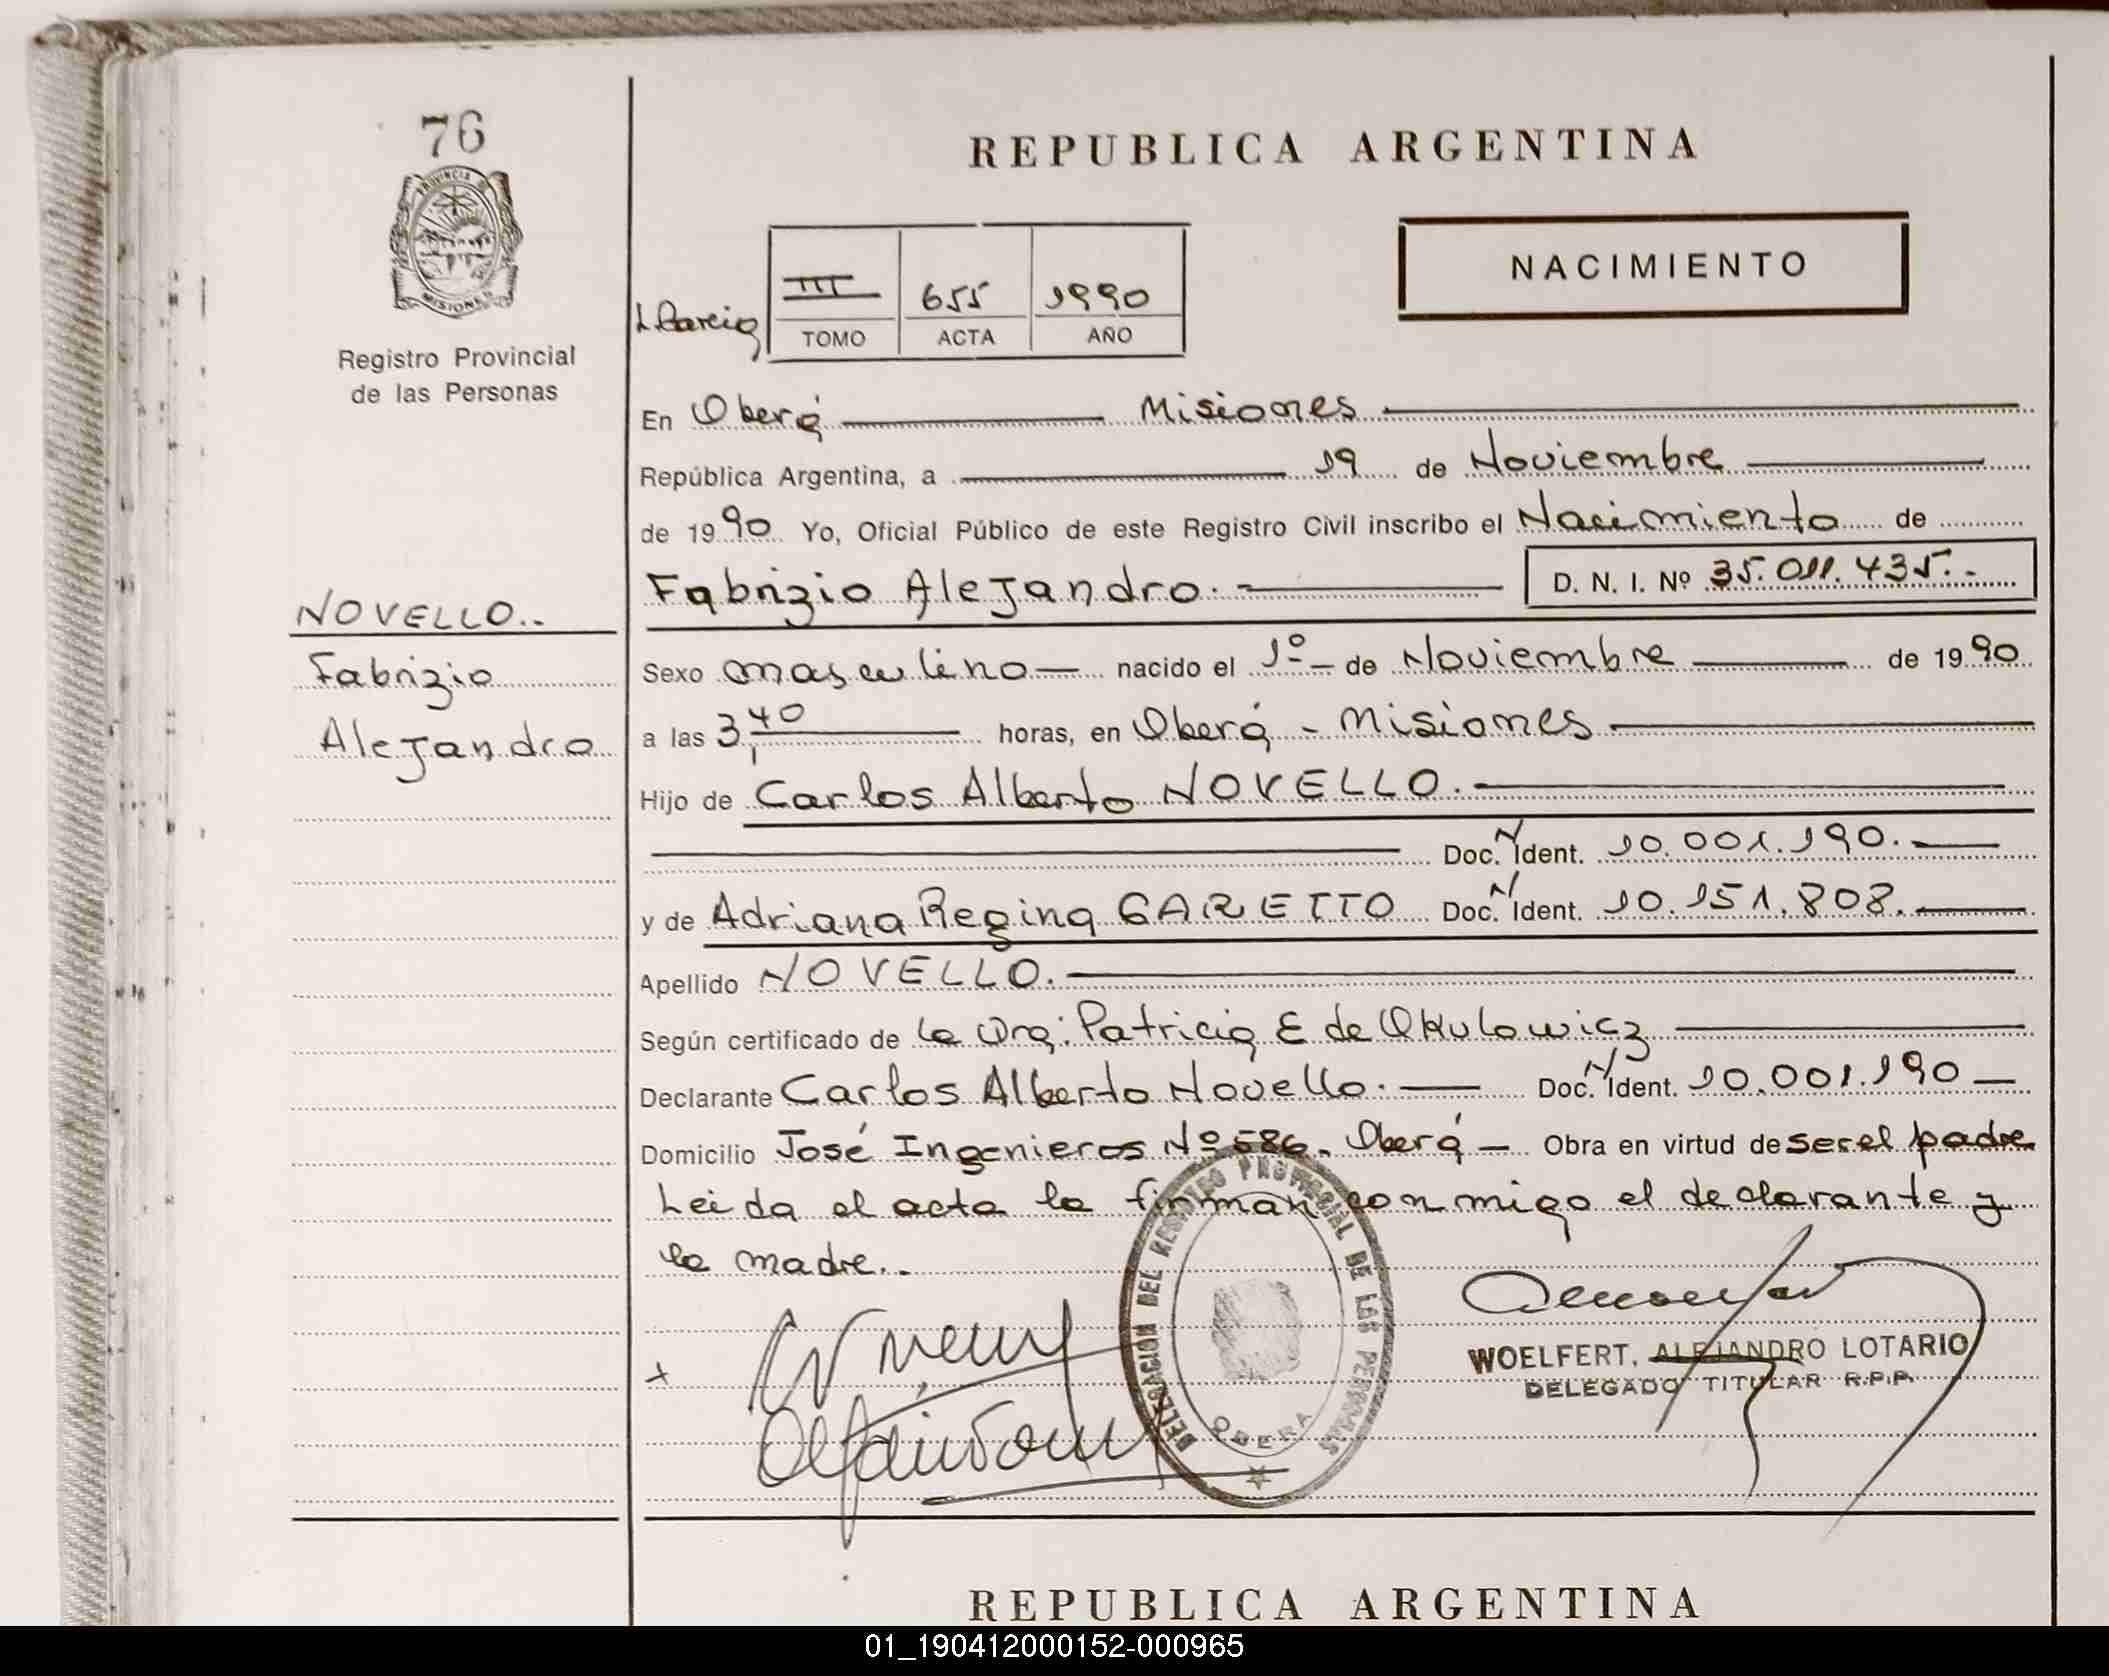 76
PROVINCIA DE
MISIONES
Registro Provincial
de las Personas
NOVELLO..
Fabrizio
Alejandro
REPUBLICA ARGENTINA
NACIMIENTO
III 655 1990
TOMO ACTA AÑO
En Oberá Misiones
República Argentina, a 19 de Noviembre
de 1990 Yo, Oficial Público de este Registro Civil inscribo el Nacimiento de
Fabrizio Alejandro. D. N. I. Nº 35.011.435.-
Sexo masculino nacido el 1º de Noviembre de 1990
a las 3,40 horas, en Oberá - Misiones
Hijo de Carlos Alberto NOVELLO.
Doc. N Ident. 10.001.190.
y de Adriana Regina GARETTO Doc. N Ident. 10.151.808.
Apellido NOVELLO.
Según certificado de la Dra: Patricia E de Okulowicz
Declarante Carlos Alberto Novello. Doc. N Ident. 10.001.190
Domicilio José Ingenieros Nº 586. Oberá Obra en virtud de ser el padre
Leida el acta la firman conmigo el declarante y
la madre..
DELEGACION DEL REGISTRO PROVINCIAL DE LAS PERSONAS
OBERA
WOELFERT, ALEJANDRO LOTARIO
DELEGADO TITULAR R.P.P.
REPUBLICA ARGENTINA
01_190412000152-000965